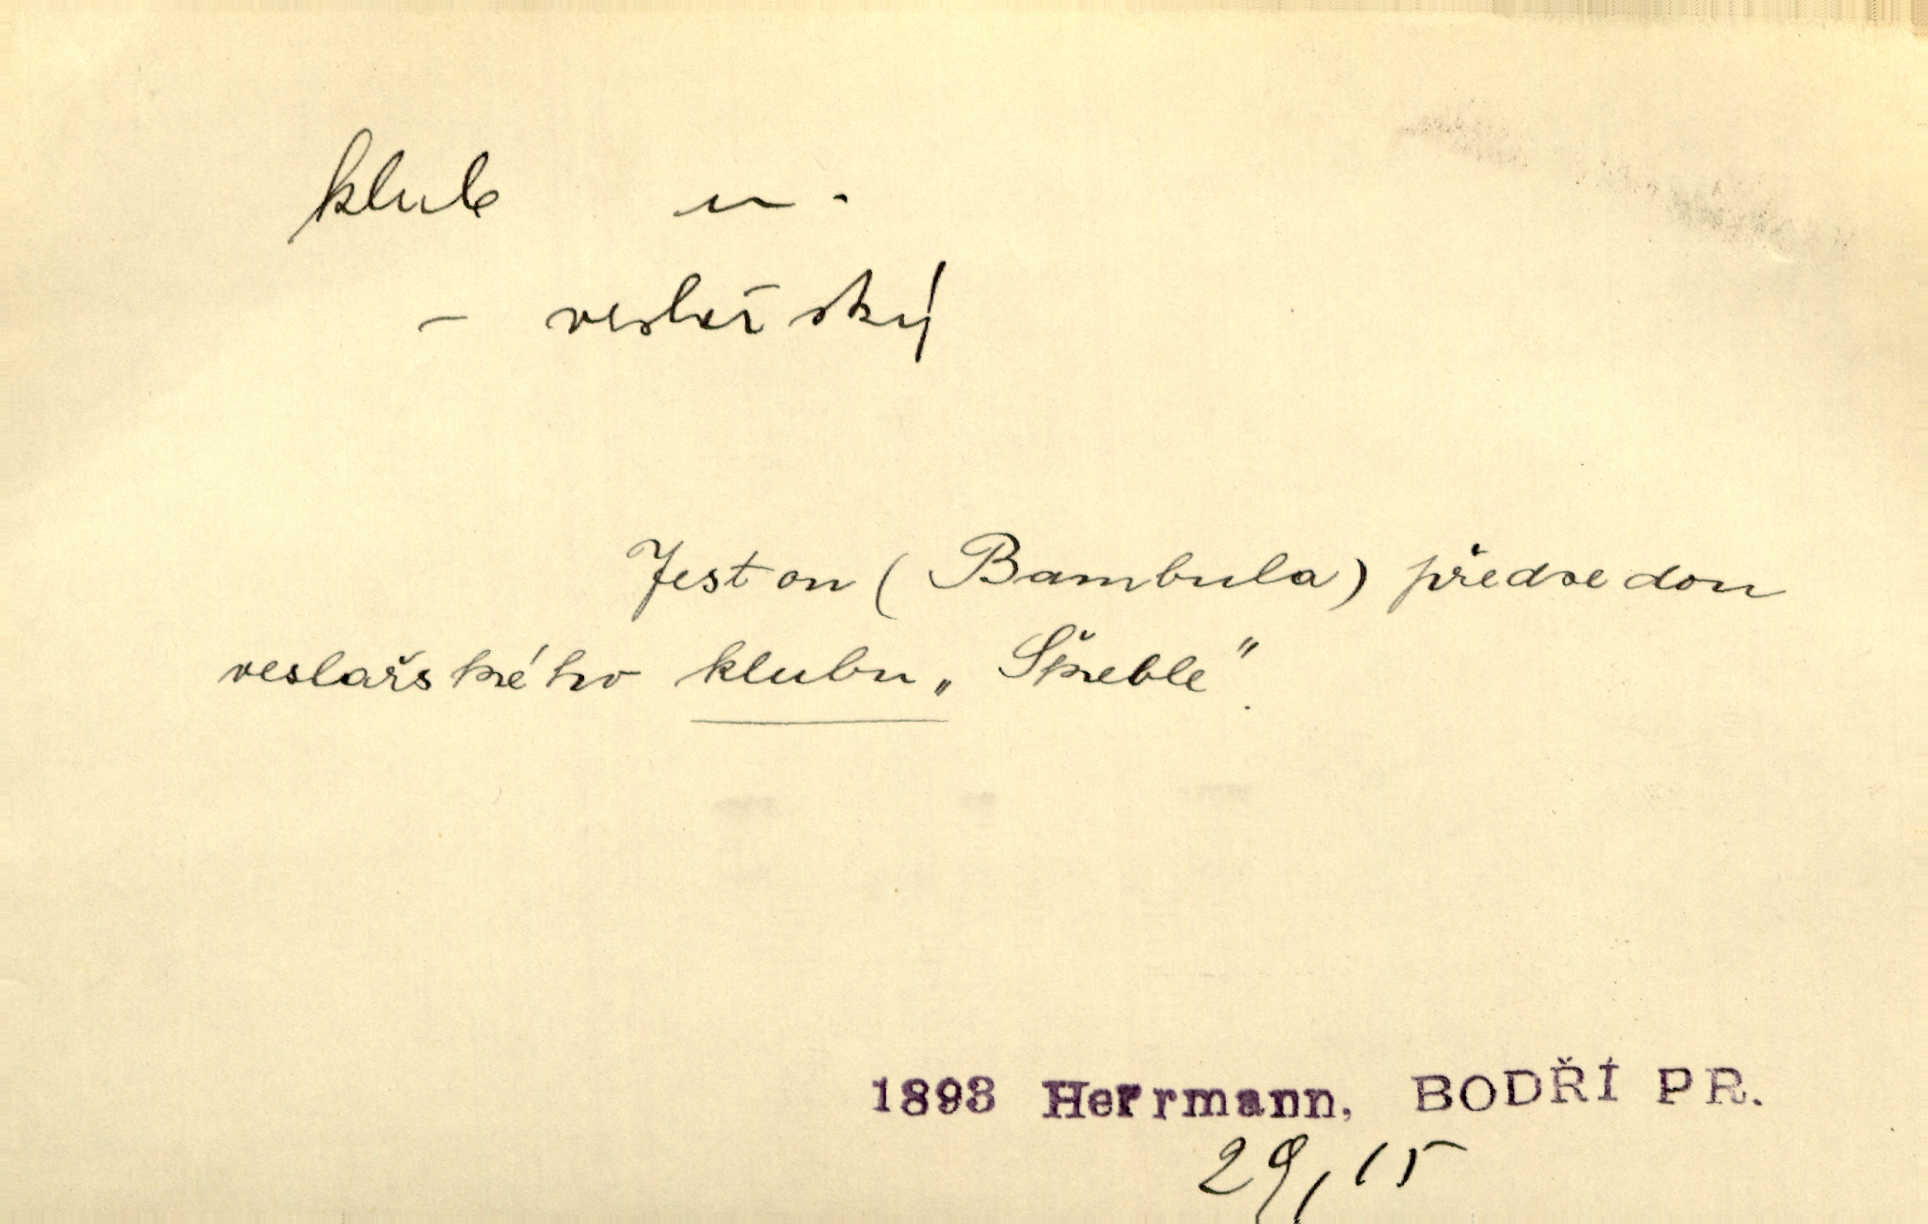 klub m.
– veslařský
Jest on (Bambula) předsedou
veslařského klubu „Škeble".
1893 Herrmann, BODŘÍ PR.
29, 15